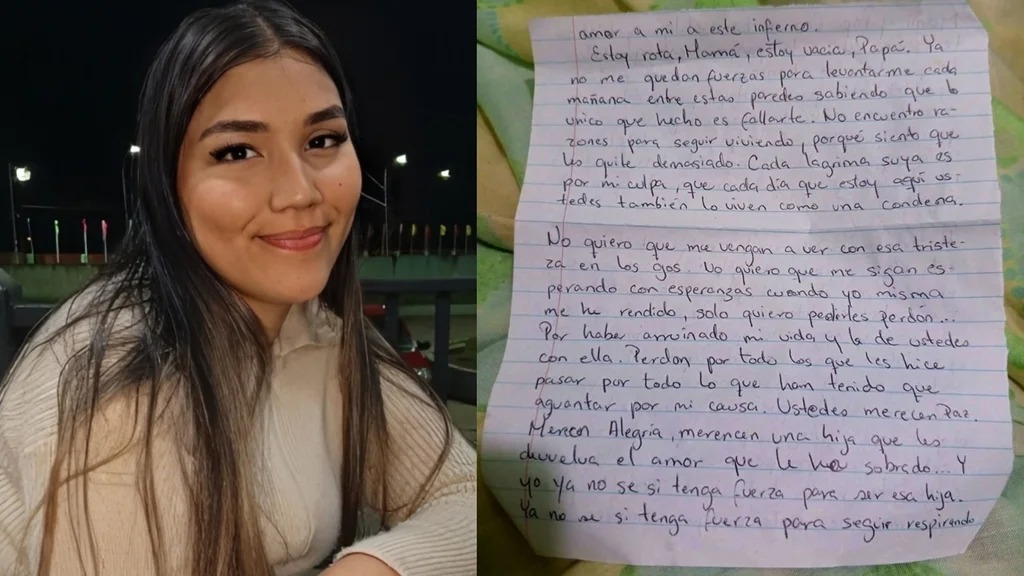 amor a mi a este infierno.
Estoy rota, Mamá, estoy vacia, Papá. Ya
no me quedan fuerzas para levantarme cada
mañana entre estas paredes sabiendo que lo
unico que hecho es fallarte. No encuentro ra-
zones para seguir viviendo, porqué siento que
los quite demasiado. Cada lagima suya es
por mi culpa, que cada dia que estoy aqui us-
tedes también lo viven como una condena.
No quiero que me vengan a ver con esa triste-
za en los ojos. No quiero que me sigan es-
perando con esperanzas cuando yo misma
me he rendido, solo quiero pedirles perdón...
Por haber arruinado mi vida y la de ustedes
con ella. Perdon, por todo los que les hice
pasar por todo lo que han tenido que
aguantar por mi causa. Ustedes merecen Paz.
Merecen Alegria, merencen una hija que les
devuelva el amor que le ha sobrado... Y
yo ya no se si tenga fuerza para ser esa hija.
Ya no se si tenga fuerza para seguir respirando